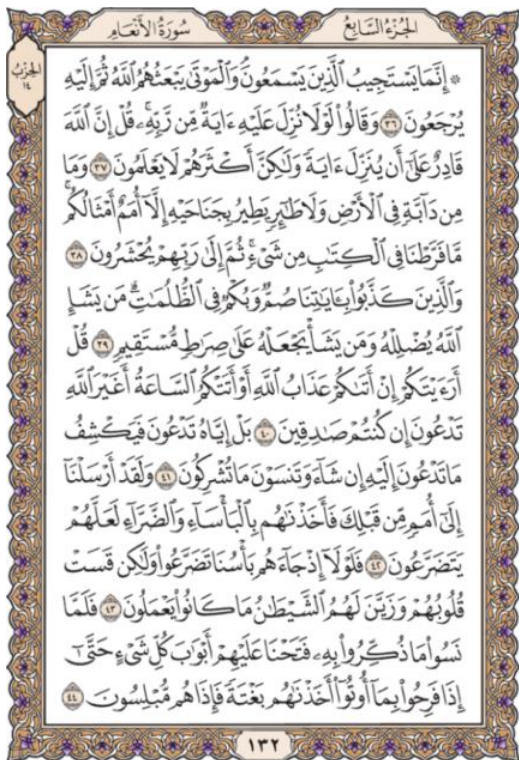 الجُزْءُ السَّابِعُ سُورَةُ الأَنْعَامِ
الحِزْبُ
١٤
۞ إِنَّمَا يَسْتَجِيبُ ٱلَّذِينَ يَسْمَعُونَۘ وَٱلْمَوْتَىٰ يَبْعَثُهُمُ ٱللَّهُ ثُمَّ إِلَيْهِ
يُرْجَعُونَ ٣٦ وَقَالُوا۟ لَوْلَا نُزِّلَ عَلَيْهِ ءَايَةٌ مِّن رَّبِّهِۦۚ قُلْ إِنَّ ٱللَّهَ
قَادِرٌ عَلَىٰٓ أَن يُنَزِّلَ ءَايَةً وَلَـٰكِنَّ أَكْثَرَهُمْ لَا يَعْلَمُونَ ٣٧ وَمَا
مِن دَآبَّةٍ فِى ٱلْأَرْضِ وَلَا طَـٰٓئِرٍ يَطِيرُ بِجَنَاحَيْهِ إِلَّآ أُمَمٌ أَمْثَالُكُمۚ
مَّا فَرَّطْنَا فِى ٱلْكِتَـٰبِ مِن شَىْءٍۚ ثُمَّ إِلَىٰ رَبِّهِمْ يُحْشَرُونَ ٣٨
وَٱلَّذِينَ كَذَّبُوا۟ بِـَٔايَـٰتِنَا صُمٌّ وَبُكْمٌ فِى ٱلظُّلُمَـٰتِۗ مَن يَشَإِ
ٱللَّهُ يُضْلِلْهُ وَمَن يَشَأْ يَجْعَلْهُ عَلَىٰ صِرَٰطٍ مُّسْتَقِيمٍ ٣٩ قُلْ
أَرَءَيْتَكُمْ إِنْ أَتَىٰكُمْ عَذَابُ ٱللَّهِ أَوْ أَتَتْكُمُ ٱلسَّاعَةُ أَغَيْرَ ٱللَّهِ
تَدْعُونَ إِن كُنتُمْ صَـٰدِقِينَ ٤٠ بَلْ إِيَّاهُ تَدْعُونَ فَيَكْشِفُ
مَا تَدْعُونَ إِلَيْهِ إِن شَآءَ وَتَنسَوْنَ مَا تُشْرِكُونَ ٤١ وَلَقَدْ أَرْسَلْنَآ
إِلَىٰٓ أُمَمٍ مِّن قَبْلِكَ فَأَخَذْنَـٰهُم بِٱلْبَأْسَآءِ وَٱلضَّرَّآءِ لَعَلَّهُمْ
يَتَضَرَّعُونَ ٤٢ فَلَوْلَآ إِذْ جَآءَهُم بَأْسُنَا تَضَرَّعُوا۟ وَلَـٰكِن قَسَتْ
قُلُوبُهُمْ وَزَيَّنَ لَهُمُ ٱلشَّيْطَـٰنُ مَا كَانُوا۟ يَعْمَلُونَ ٤٣ فَلَمَّا
نَسُوا۟ مَا ذُكِّرُوا۟ بِهِۦ فَتَحْنَا عَلَيْهِمْ أَبْوَٰبَ كُلِّ شَىْءٍ حَتَّىٰٓ
إِذَا فَرِحُوا۟ بِمَآ أُوتُوٓا۟ أَخَذْنَـٰهُم بَغْتَةً فَإِذَا هُم مُّبْلِسُونَ ٤٤
١٣٢